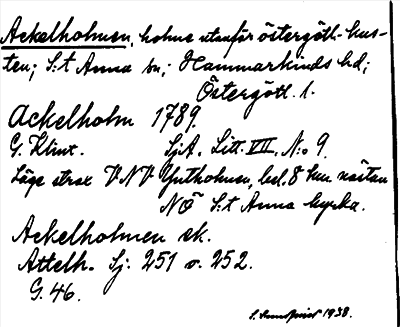 Ackelholmen, holme utanför östergötl. kus-
ten; S:t Anna sn; Hammarkinds hd;
Östergötl. l.
Ackelholm 1789.
G. Klint. SjA. Litt. VII, N:o 9.
Läge strax VNV Ytholmen, bel. 8 km nästan
NÖ S:t Anna kyrka.
Ackelholmen sk.
Attelh. Sj. 251 o. 252.
G. 46.
1938.